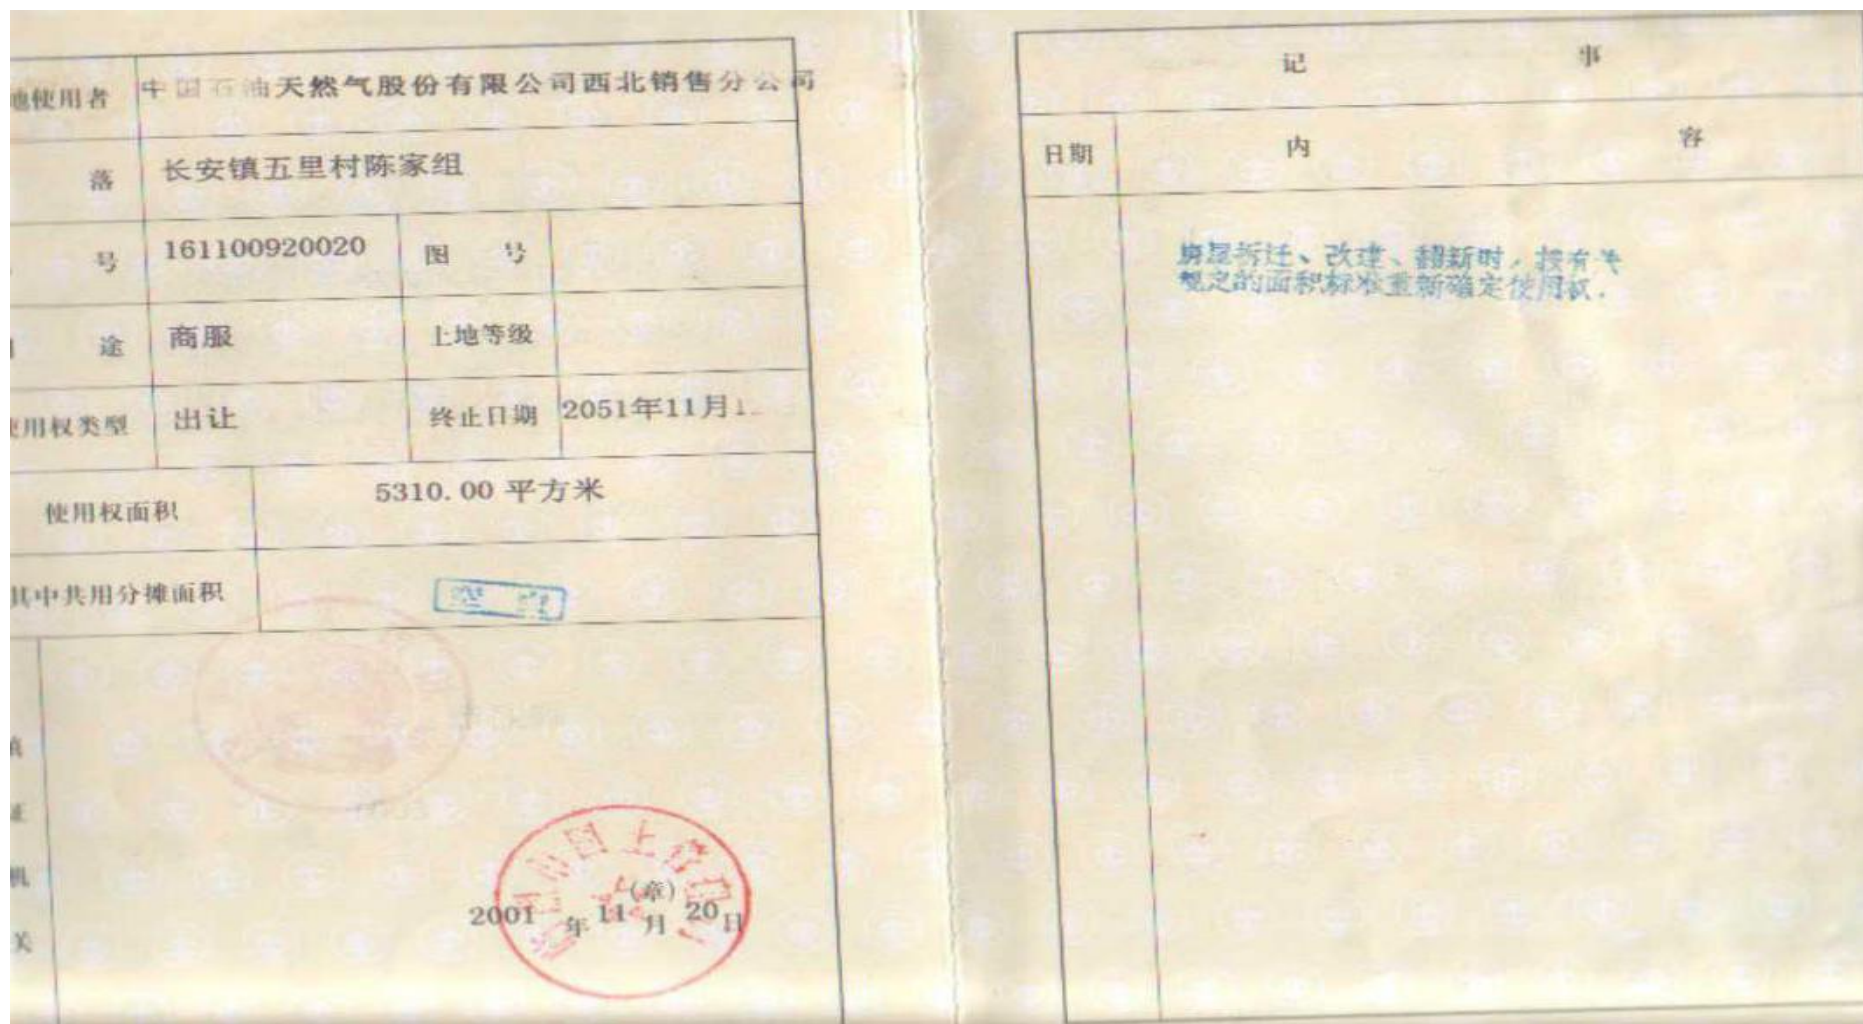 地使用者 中国石油天然气股份有限公司西北销售分公司
落 长安镇五里村陈家组
号 161100920020 图 号
途 商服 土地等级
使用权类型 出让 终止日期 2051年11月
使用权面积 5310.00 平方米
其中共用分摊面积
填
证
机
关
(章)
2001 年 11 月 20 日
记 事
日期 内 容
房屋拆迁、改建、翻新时，按有关
规定的面积标准重新确定使用权.